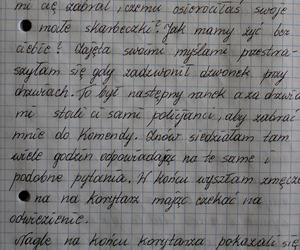 mi cię zabrał i czemu osierociłaś swoje
małe skarbeczki? Jak mamy żyć bez
ciebie? Zajęta swoimi myślami przestra-
szyłam się gdy zadzwonił dzwonek przy
drzwiach. To był następny ranek a za drzwia
mi stali ci sami policjanci, aby zabrać
mnie do komendy. Znów siedziałam tam
wiele godzin odpowiadając na te same i
podobne pytania. W końcu wyszłam zmęczo
na na korytarz mając czekać na
odwiezienie.
Nagle na końcu korytarza pokazali się